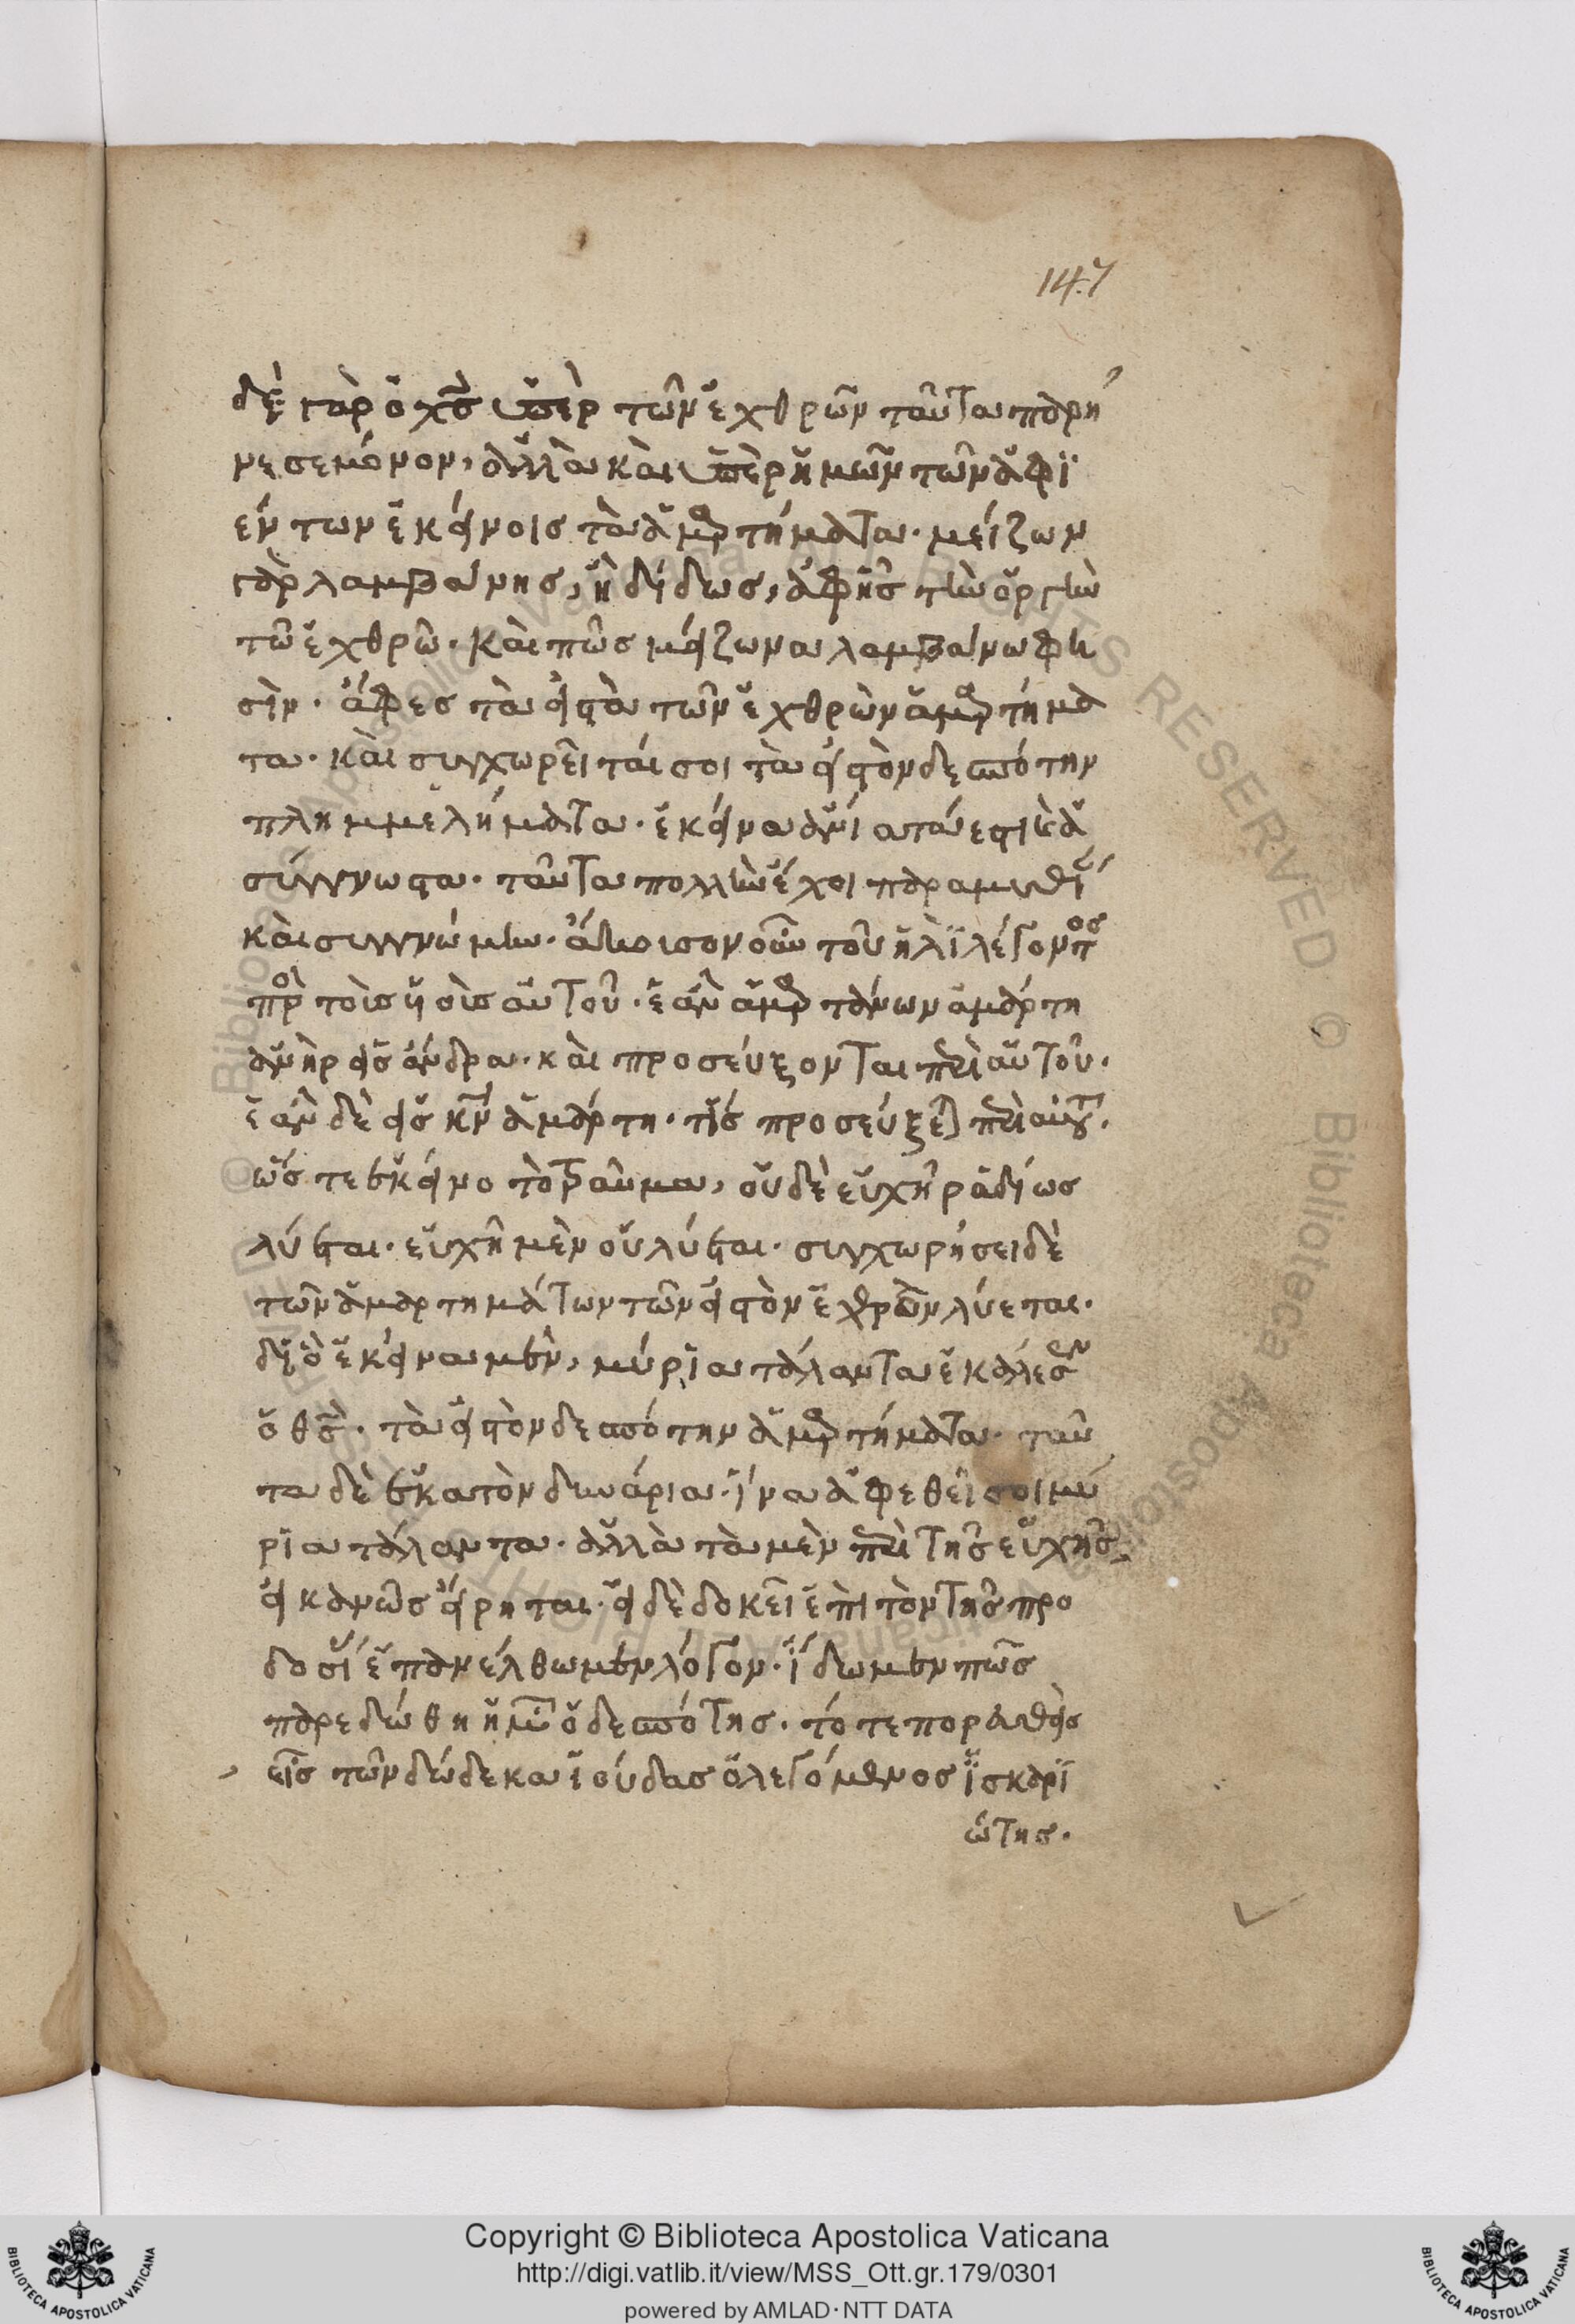 147
δὲ γὰρ ὁ χ̅ς̅ ὑπὲρ τῶν ἐχθρῶν ταῦτα παρή
νεσε μόνον, ἀλλὰ καὶ ὑπὲρ ἡμῶν τῶν ἀφϊ
έντων ἐκείνοις τὰ ἁμρτήματα· μείζων
γὰρ λαμβάνης, ἢ δίδως, ἀφῆς τὴν ὀργὴν
τῶ ἐχθρῶ· καὶ πῶς μείζωνα λαμβάνω φη
σὶν· ἄφες τὰ εἰς τὰ τῶν ἐχθρὼν ἁμρτήμα
τα· καὶ συγχωρεῖται σοι τὰ εἰς τὸν δεσπότην
πλημμελήματα· ἐκεῖνα ἀνίατά ἐστι καὶ ἀ
σύγγνωστα· ταῦτα πολλὴν ἔχοι παραμυθί
καὶ συγγνώμην· ἄκουσον οὖν τοῦ ἠλὶ λέγοντος
πρ τοῖς ὑοῖς αὐτοῦ· ἐὰν ἁμρτάνων ἁμάρτη
ἀνὴρ εἰς ἄνδρα· καὶ προσεύξονται περὶ αὐτοῦ·
ἐὰν δὲ εἰς κν ἁμάρτη· τίς προσεύξεται περὶ αὐτοῦ·
ὥστε ἐκεῖνο τὸ τραῦμα, οὐδὲ εὐχῆ ῥαδίως
λύεται· εὐχῆ μὲν οὐ λύεται· συγχωρήσει δὲ
τῶν ἁμαρτημάτων τῶν εἰς τὸν ἐχθρὸν λύεται·
διὸ ἐκεῖνα μὲν, μύρϊα τάλαντα ἐκάλεσεν
ὁ θ̅ς̅· τὰ εἰς τὸν δεσπότην ἁμρτήματα· ταῦ
τα δὲ ἑκατὸν δηνάρια· ἵνα ἀφεθεῖ σοι μύ
ρϊα τάλαντα· ἀλλὰ τὰ μὲν περὶ τῆς εὐχῆς
εἰκανῶς εἴρηται· εἰ δὲ δοκεῖ ἐπὶ τὸν τῆς προ
δοσί ἐπανέλθωμεν λόγον· ἴδωμεν πῶς
παρεδώθη ἡμῶν ὁ δεσπότης· τότε πορευθεὶς
εἷς τῶν δώδεκα ἰούδας ὁ λεγόμενος ἰσκαρϊ
ώτης·
Copyright © Biblioteca Apostolica Vaticana
http://digi.vatlib.it/view/MSS_Ott.gr.179/0301
powered by AMLAD·NTT DATA
BIBLIOTECA APOSTOLICA VATICANA
BIBLIOTECA APOSTOLICA VATICANA